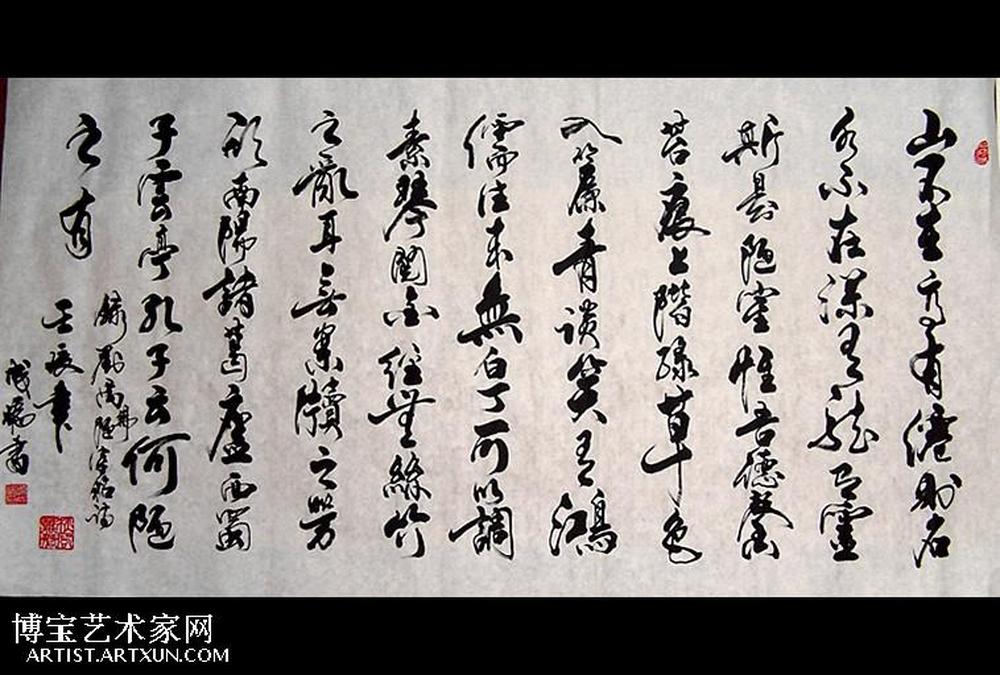 山不在高有僊則名
水不在深有龍則靈
斯是陋室惟吾德馨
苔痕上階綠草色
入簾青談笑有鴻
儒往來無白丁可以調
素琴閱金經無絲竹
之亂耳無案牘之勞
形南陽諸葛廬西蜀
子雲亭孔子云何陋
之有
錄劉禹錫陋室銘
壬辰
書
博宝艺术家网
ARTIST.ARTXUN.COM